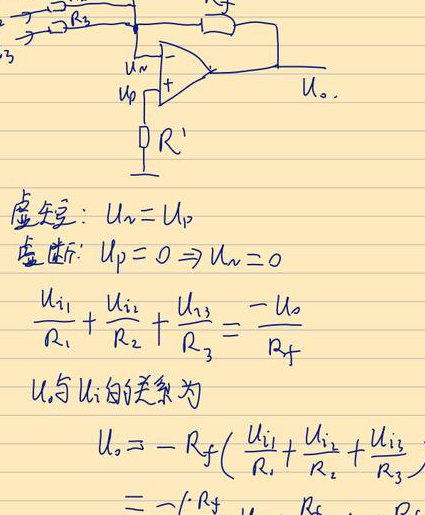 R₃
R_f
3
U_N
U_p
U_o.
R'
虚短: U_N = U_p
虚断: U_p = 0 ⇒ U_N = 0
U_{i1}/R_1 + U_{i2}/R_2 + U_{i3}/R_3 = -U_o/R_f
U_o与U_i的关系为
U_o = -R_f(U_{i1}/R_1 + U_{i2}/R_2 + U_{i3}/R_3)
= -(R_f